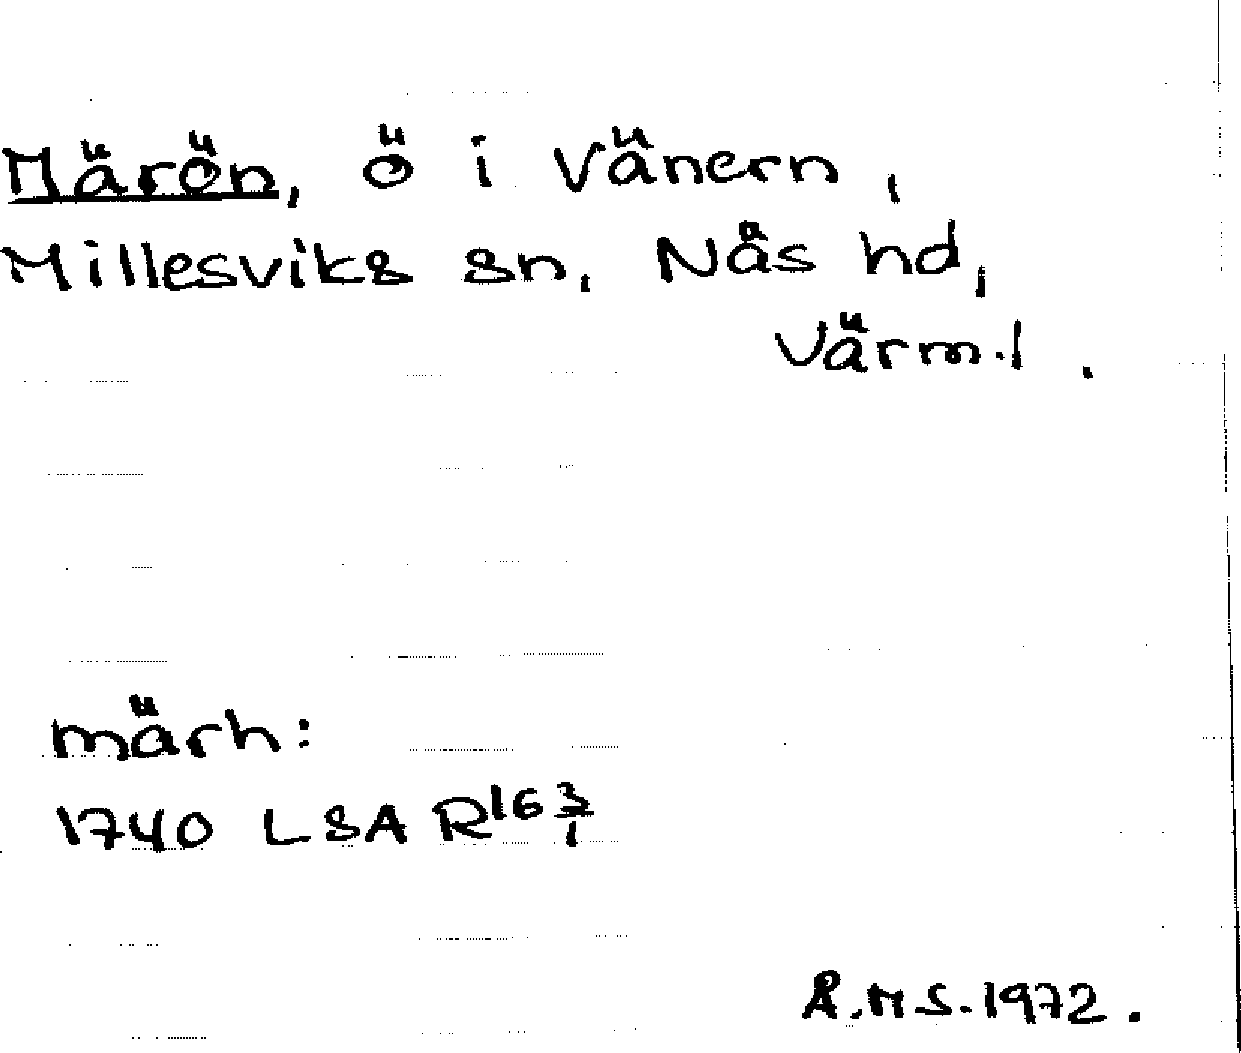 Märön, ö i Vänern,
Millesviks sn, Nås hd,
Värml.
märh:
1740 LSA R16 3/1
R.M.S. 1972.